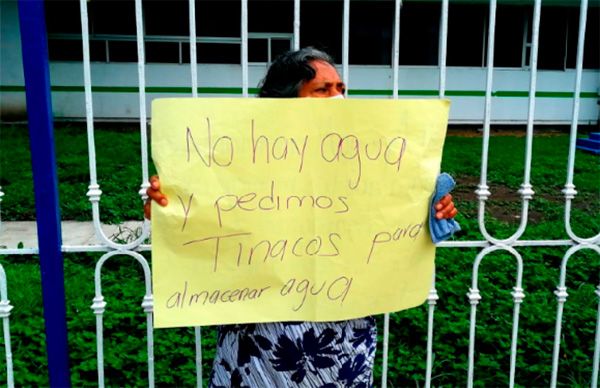 No hay agua
y pedimos
Tinacos para
almacenar agua